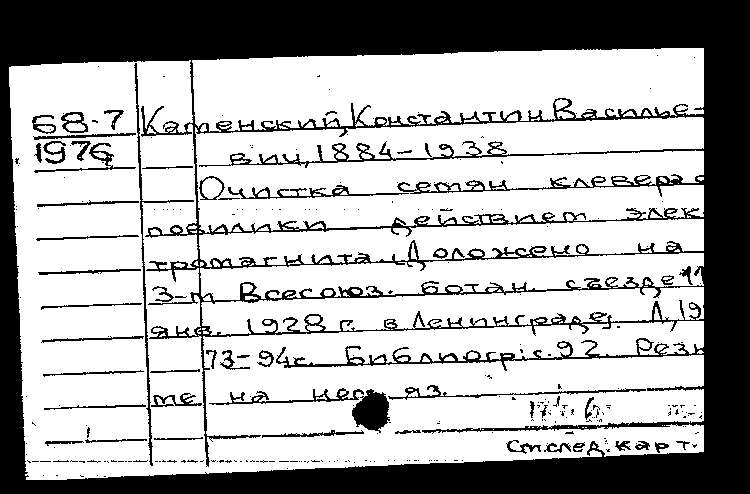 68-7 Каменский, Константин Василье-
1976 вич, 1884-1938
Очистка семян клевера о
повилики действием элек
тромагнита. (Доложено на
3-м Всесоюз. ботан. съезде 11
янв. 1928 г. в Ленинграде). Л., 19
73-94 с. Библиогр: с. 92. Резю
ме на нем. яз.
См. след. карт.